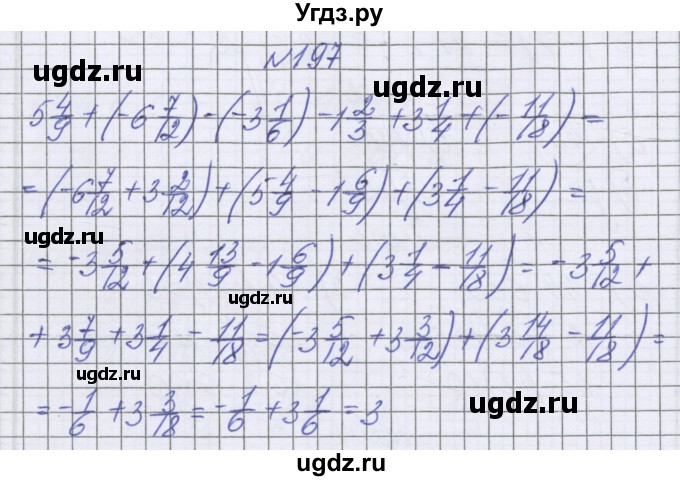 Угдз.ру
№197
ugdz.ru
ugdz.ru
5 4/9 + (-6 7/12) - (-3 1/6) - 1 2/3 + 3 1/4 + (- 11/18) =
= (-6 7/12 + 3 2/12) + (5 4/9 - 1 6/9) + (3 1/4 - 11/18) =
ugdz.ru
= -3 5/12 + (4 13/9 - 1 6/9) + (3 1/4 - 11/18) = -3 5/12 +
ugdz.ru
+ 3 7/9 + 3 1/4 - 11/18 = (-3 5/12 + 3 3/12) + (3 14/18 - 11/18) =
ugdz.ru
= - 1/6 + 3 3/18 = - 1/6 + 3 1/6 = 3
ugdz.ru
ugdz.ru